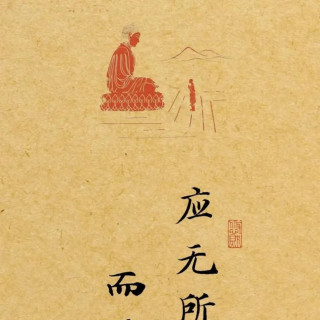 应无所
而